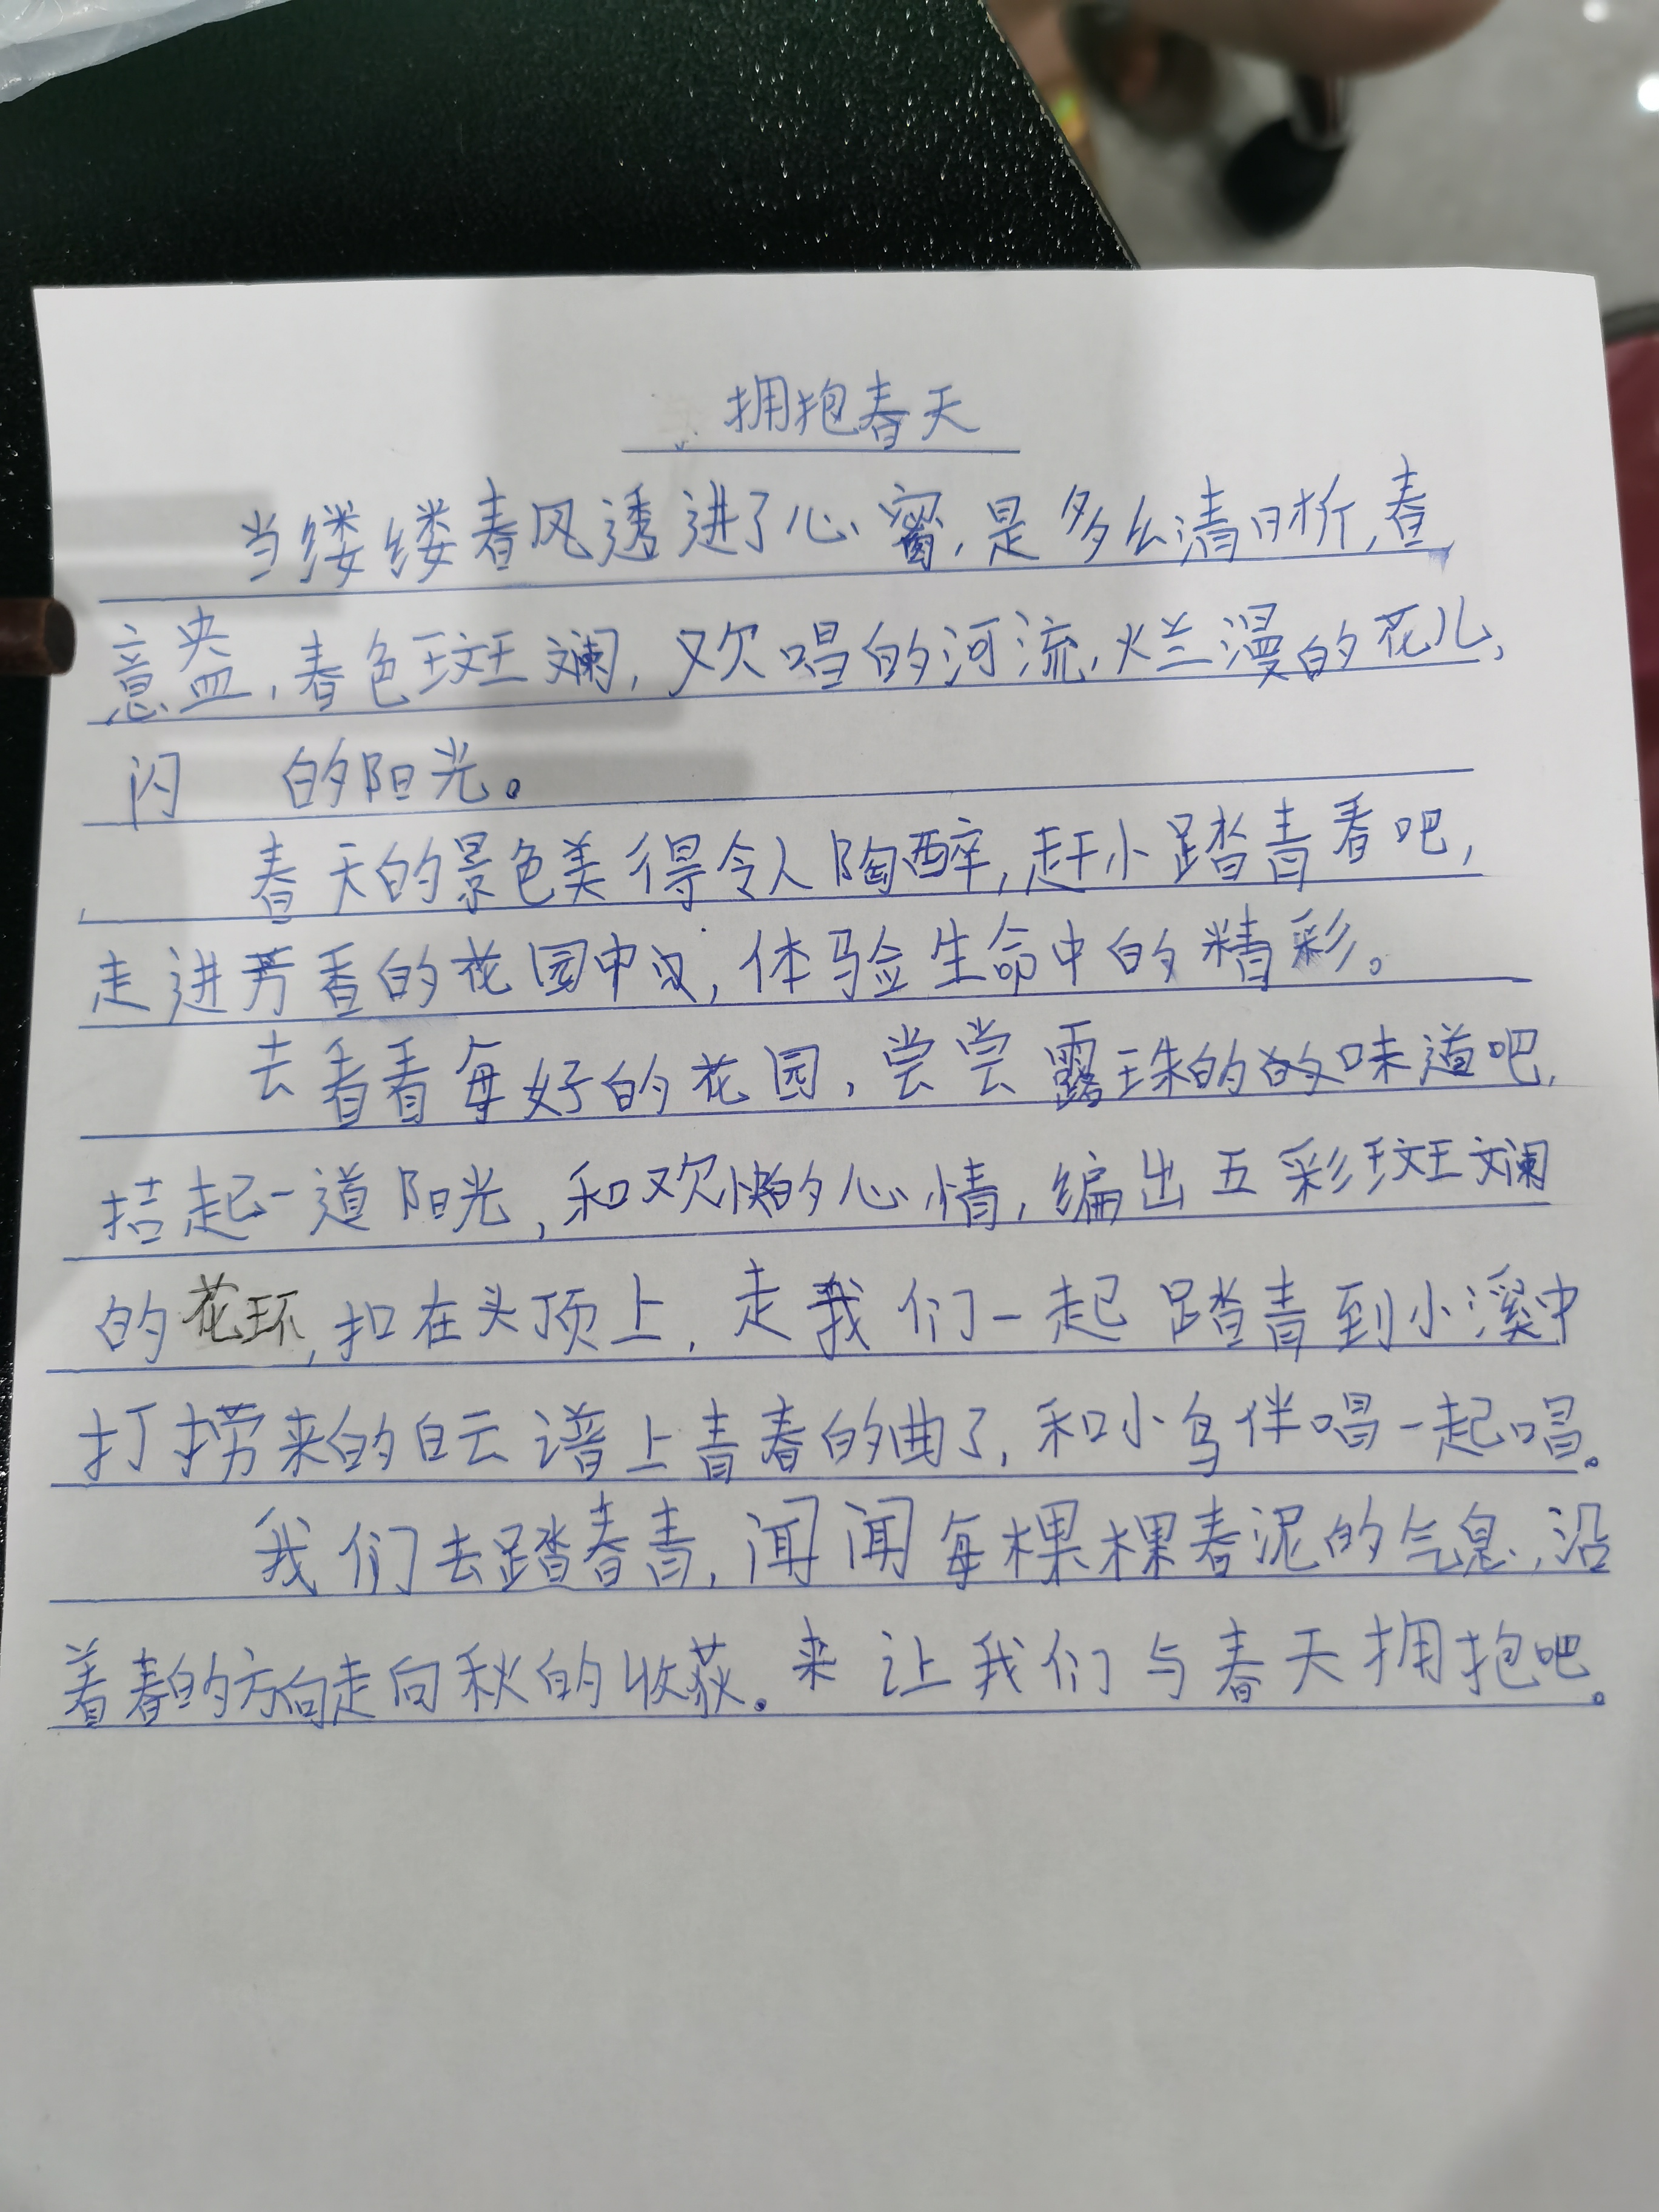 拥抱春天
当缕缕春风透进了心窗,是多么清晰,春
意盎,春色斑斓,欢唱的河流,烂漫的花儿,
闪 的阳光。
春天的景色美得令人陶醉,赶小踏青看吧,
走进芳香的花园中,体验生命中的精彩。
去看看每好的花园,尝尝露珠的味道吧,
拮起一道阳光,和欢快的心情,编出五彩斑斓
的花环,扣在头顶上,走我们一起踏青到小溪中
打捞来的白云谱上青春的曲了,和小鸟伴唱一起唱。
我们去踏春青,闻闻每棵棵春泥的气息,沿
着春的方向走向秋的收获。来让我们与春天拥抱吧。